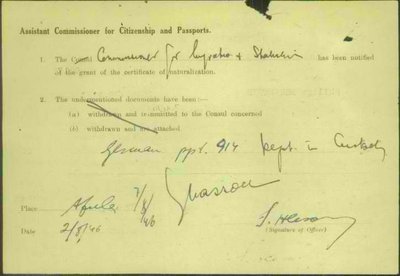 Assistant Commissioner for Citizenship and Passports.
1. The Consul Commissioner for Migration & Statistics has been notified
of the grant of the certificate of naturalization.
2. The undermentioned documents have been:—
(a) withdrawn and transmitted to the Consul concerned
(b) withdrawn and are attached
German ppt. 914 kept in Custody
7/8/46
Place Afula
(Signature of Officer)
Date 2/8/46